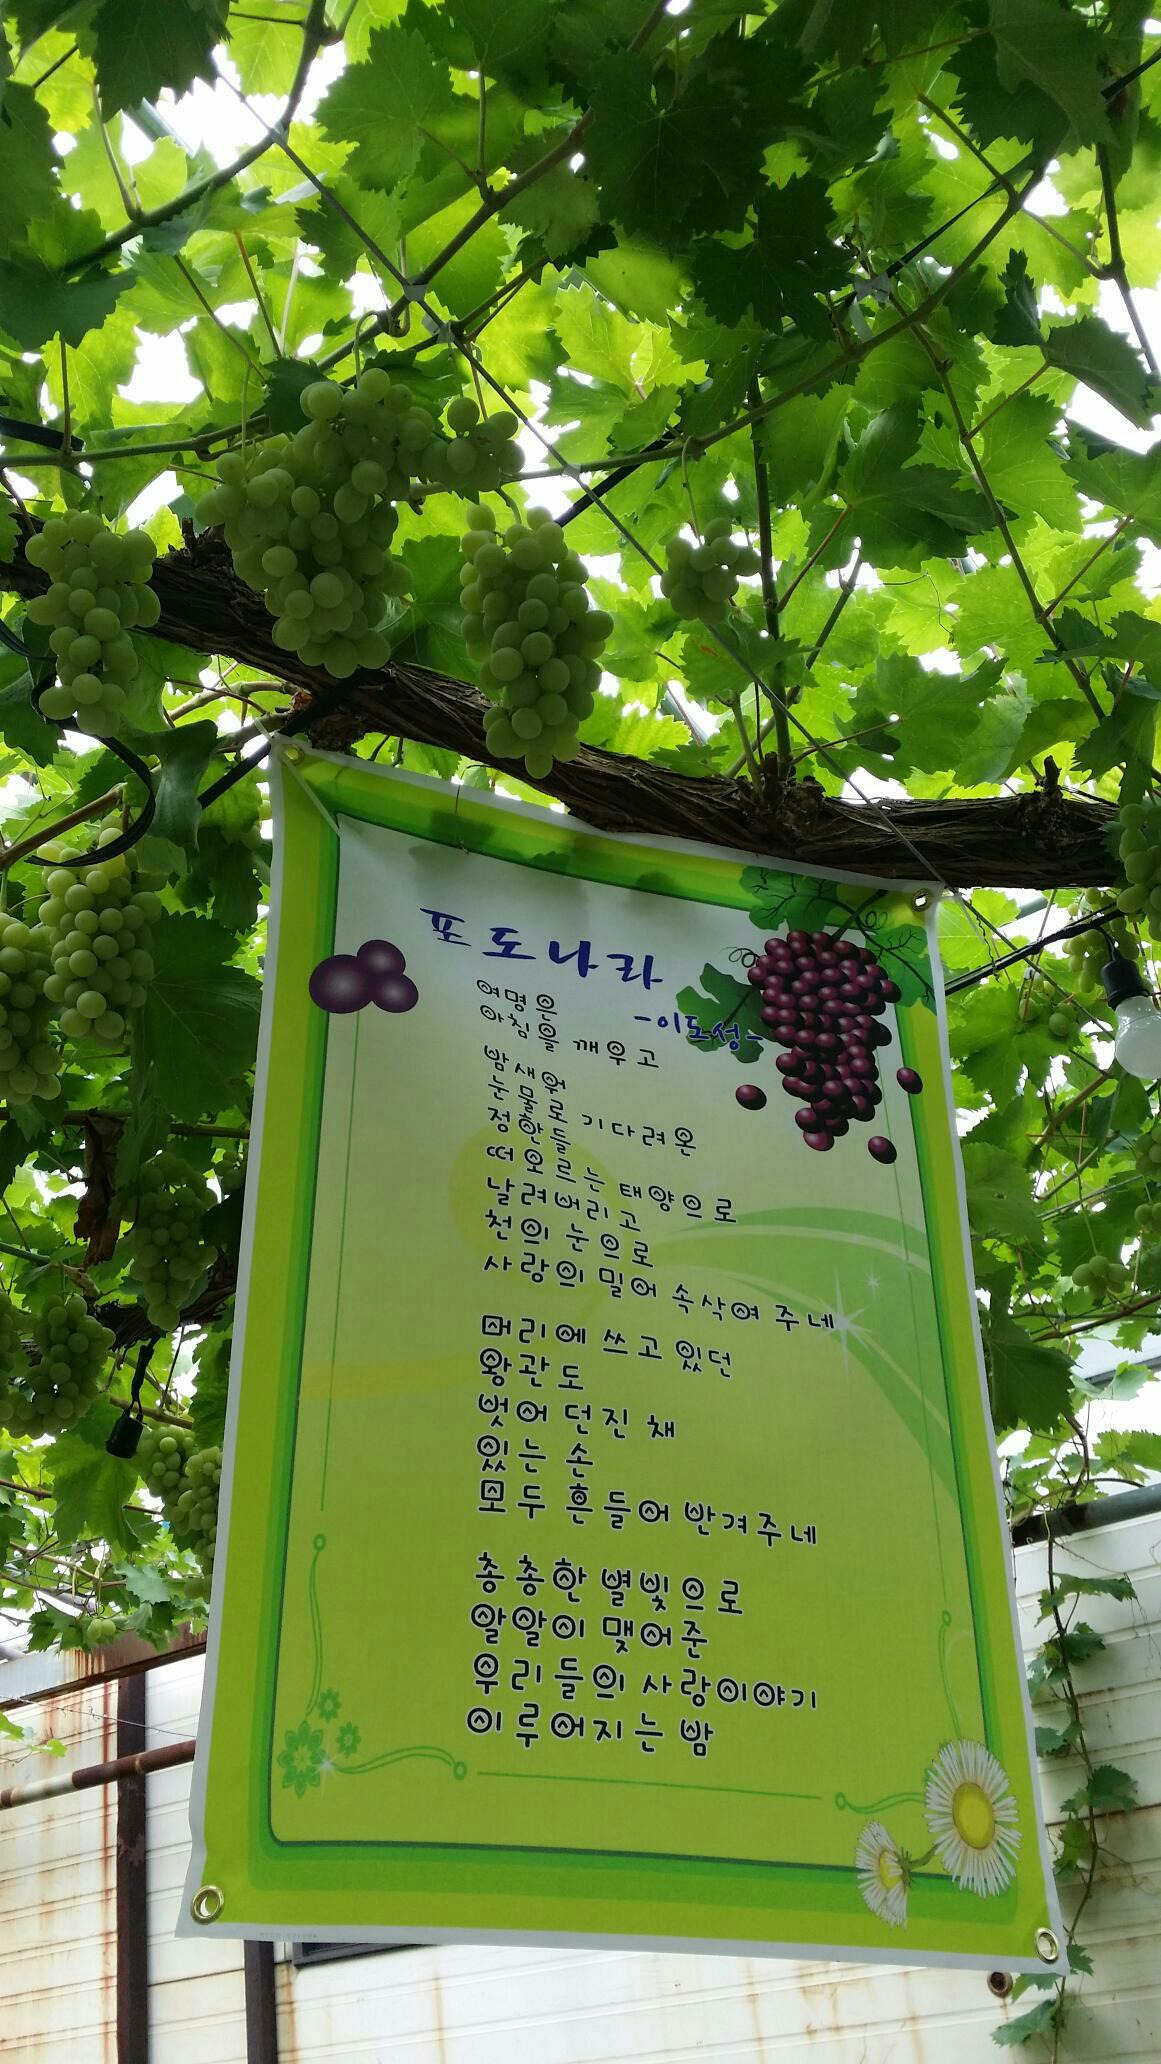 포도나라
-이도성-
여명은
아침을 깨우고
밤새워
눈물로 기다려온
정한들
떠오르는 태양으로
날려버리고
천의 눈으로
사랑의 밀어 속삭여 주네
머리에 쓰고 있던
왕관도
벗어 던진 채
있는 손
모두 흔들어 반겨주네
총총한 별빛으로
알알이 맺어준
우리들의 사랑이야기
이루어지는 밤